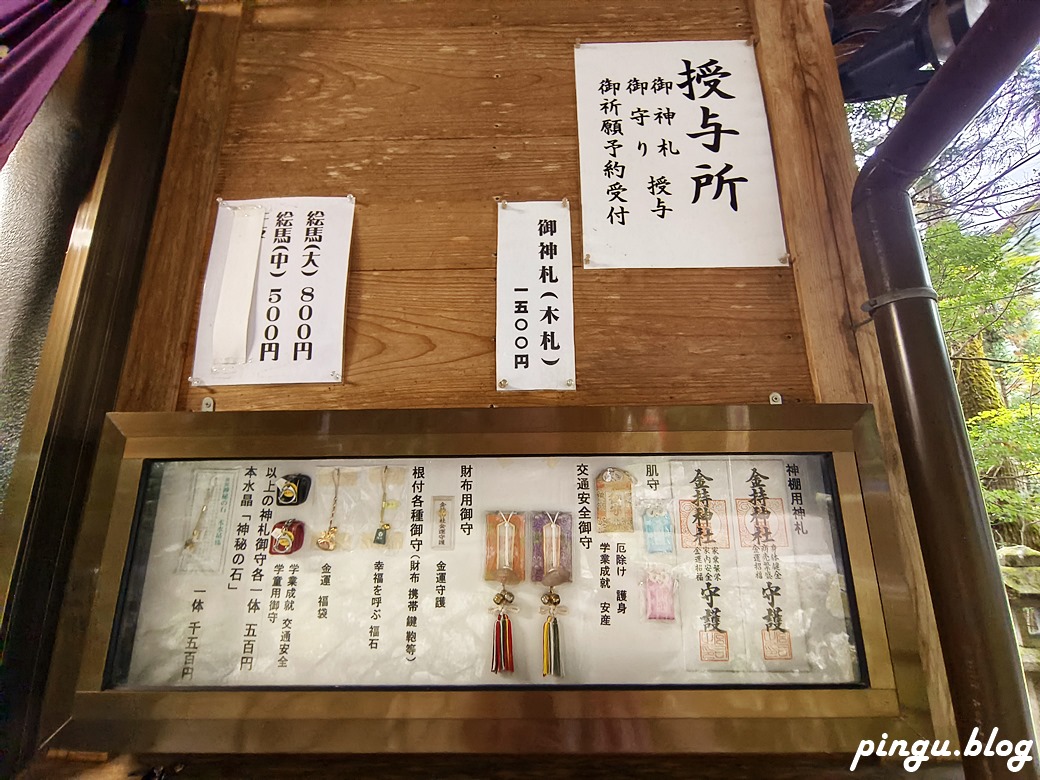 授与所
御神札 授与
御守り
御祈願予約受付
御神札(木札)
一五〇〇円
絵馬(大) 800円
絵馬(中) 500円
神棚用神札
金持神社
身体健全
商売繁盛
金運招福
守護
金持神社
家業繁栄
家内安全
金運招福
守護
肌守
厄除け 護身
学業成就 安産
交通安全御守
財布用御守
金運守護
根付各種御守(財布 携帯 鍵 鞄等)
幸福を呼ぶ 福石
金運 福袋
学業成就 交通安全
学童用御守
以上の神札御守各一体 五百円
本水晶「神秘の石」
一体 千五百円
pingu.blog